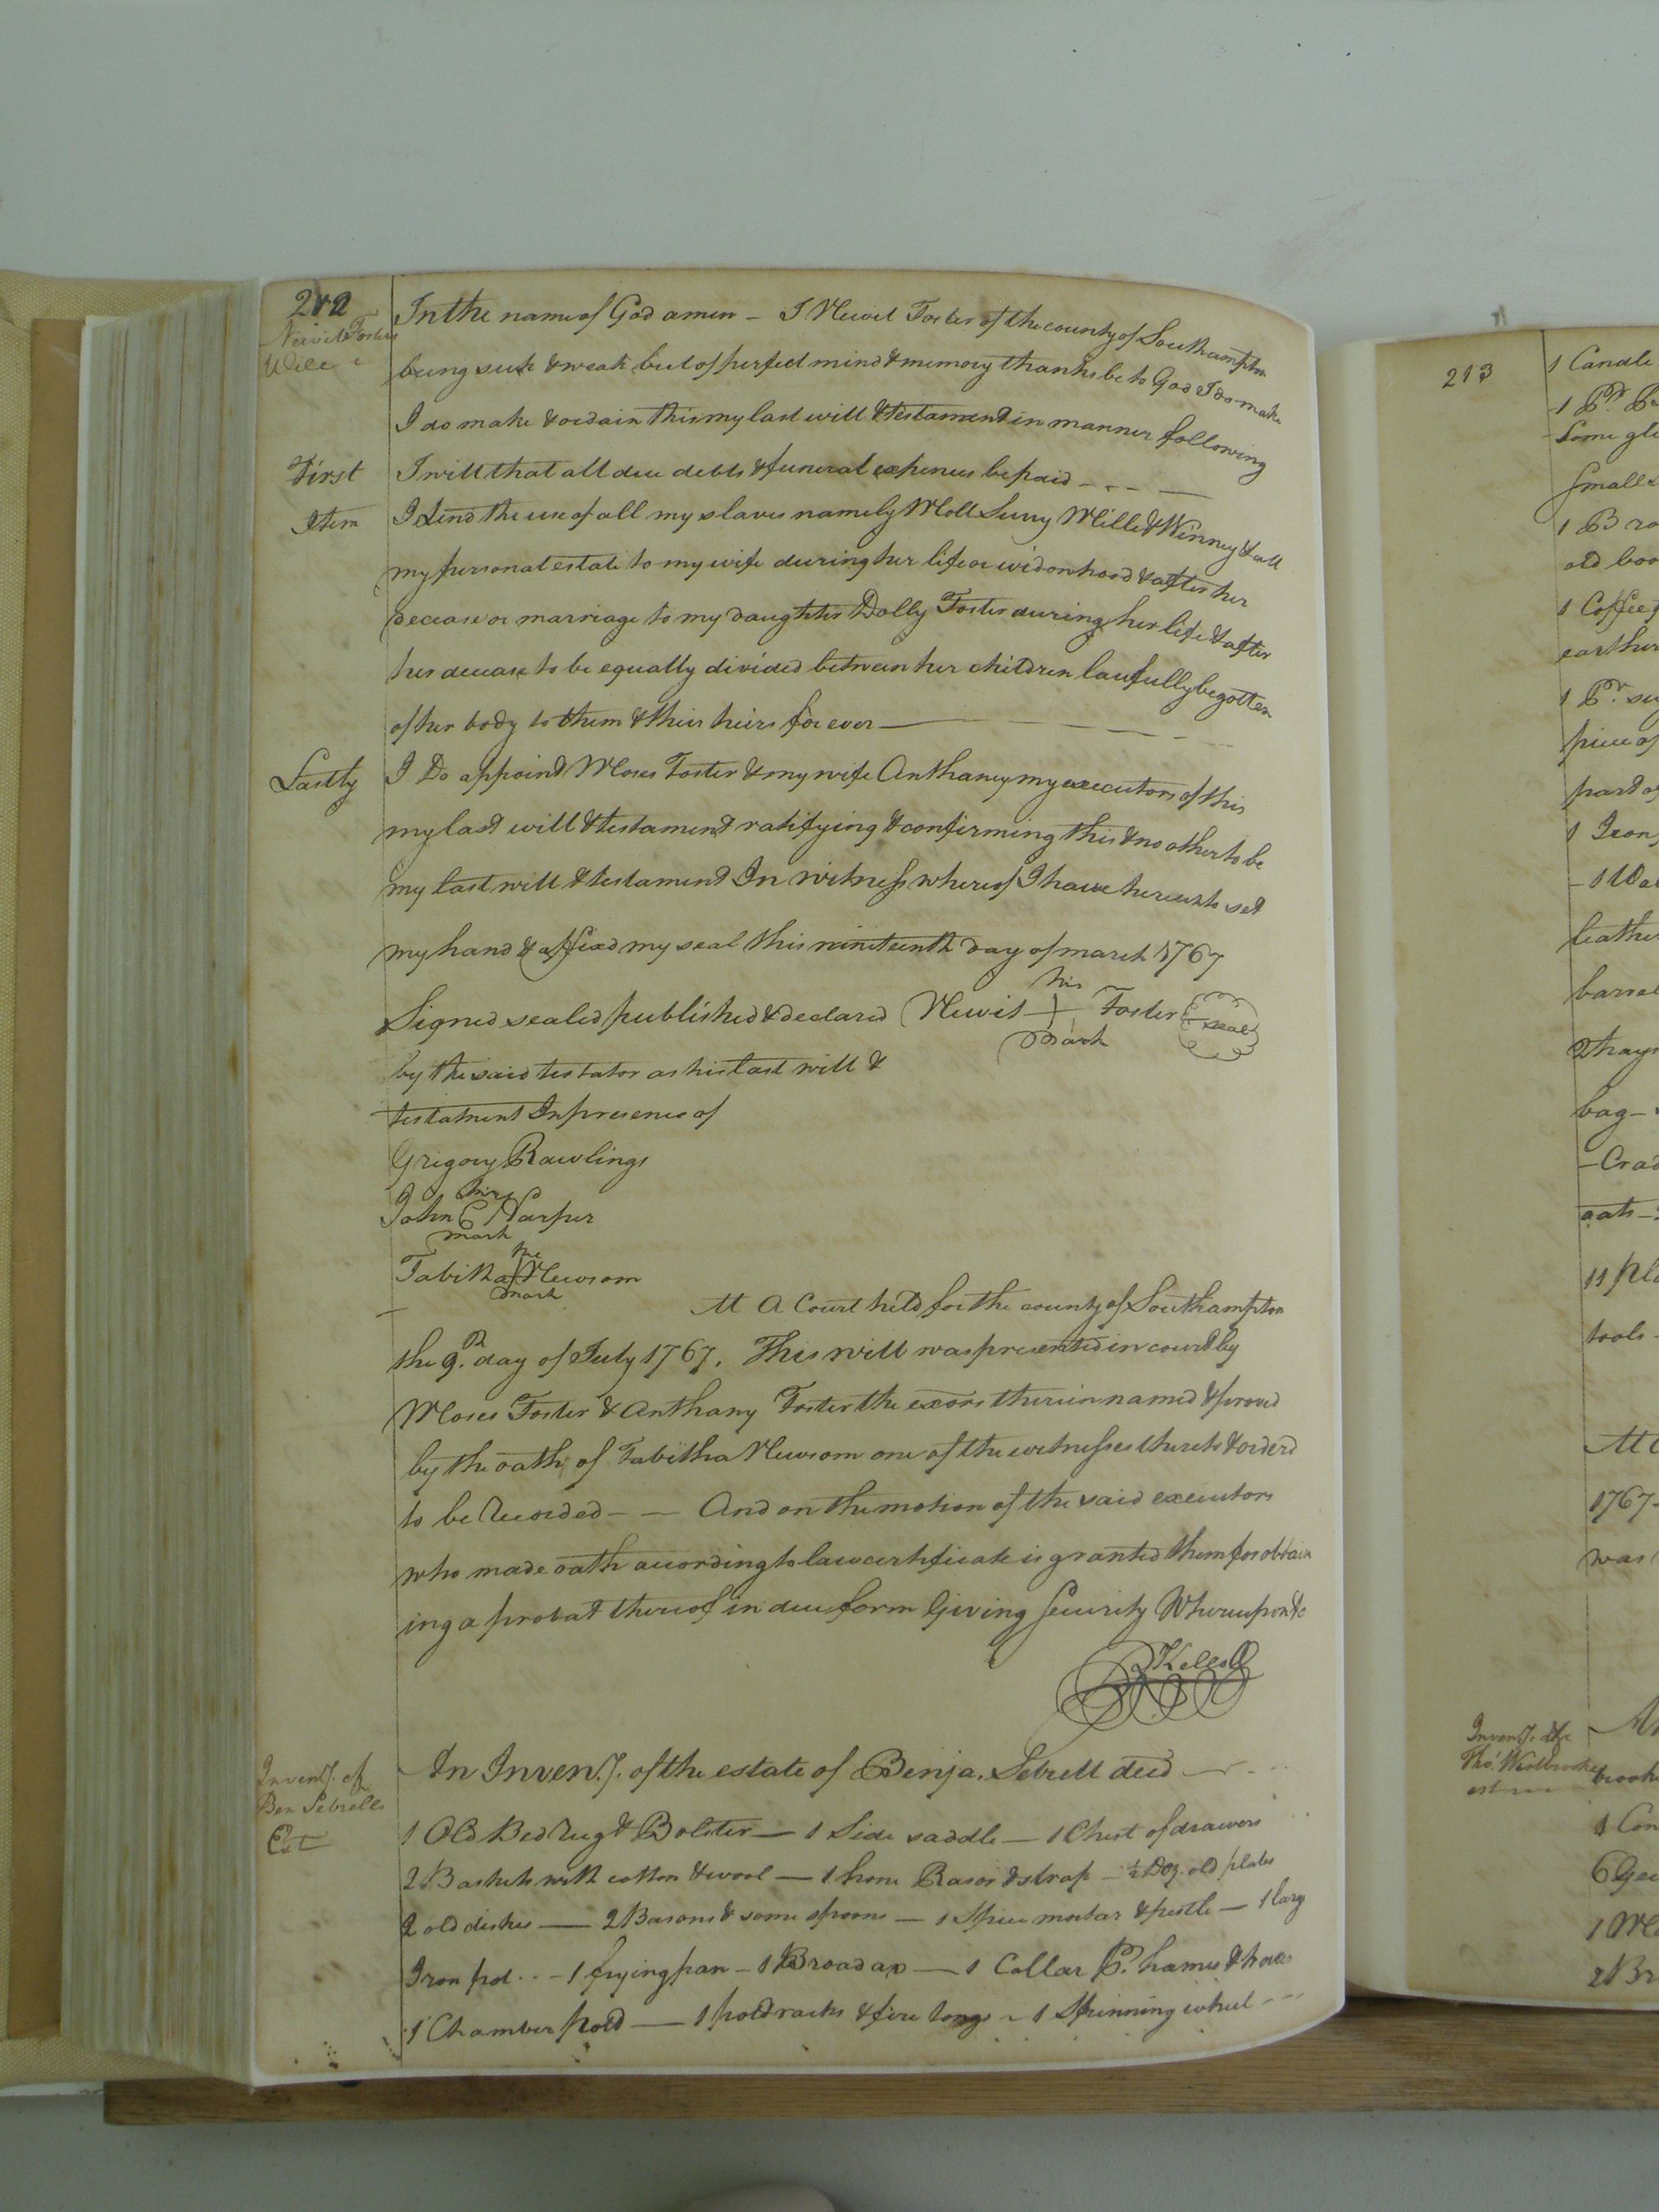 212
Newit Fosters
Will
In the name of God amen – I Newit Foster of the county of Southampton
being sick & weak but of perfect mind & memory thanks be to God I do make
I do make & ordain this my last will & testament in manner following
First I will that all due debts & funeral expences be paid - - - —
Item I Lend the use of all my slaves namely Moll Surry Mille & Winney & all
my personal estate to my wife during her life or widonhood & after her
decease or marriage to my daughter Dolly Foster during her life & after
her decease to be equally divided between her children laufully begotten
of her body to them & their heirs for ever —
Lastly I Do appoint Moses Foster & my wife Anthaney my executors of this
my last will & testament ratifying & confirming this & no other to be
my last will & testament In witness whereof I have hereunto set
my hand & affixd my seal this nineteenth day of march 1767
his
Signed sealed published & declared Newit + Foster seal
mark
by the said testator as his last will &
testament In presence of
Grigory Rawlings
his
John C Harper
mark
her
Tabitha Newsom
mark
At A Court held for the county of Southampton
the 9.th day of July 1767. This will was presented in court by
Moses Foster & Anthany Foster the exors therein named & proved
by the oath of Tabitha Newsom one of the witnesses thereto & orderd
to be Recorded – — And on the motion of the said executors
who made oath according to law certificate is granted them for obtain
ing a probat thereof in due form Giving Security Whereupon &c
Kello
Inventy. of
Ben Sebrells
Est
An Inventy. of the estate of Benja. Sebrell decd
1 Old Bed rug & Bolster — 1 Side saddle — 1 Chest of drawers
2 Baskets with cotton & wool — 1 hone Rasor & strap – ½ Doz. old plates
2 old dishes — 2 Basons & some spoons — 1 Spice mortar & pestle — 1 larg
Iron pot .. – 1 frying pan – 1 Broad ax — 1 Collar Pr. hames & traces
1 Chamber pott — 1 pottracks & fire tongs – 1 Spinning wheel
213
1 Candle
1 Pr.
Some gl
Small
1 Bro
old boo
1 Coffee
earthen
1 Pr.
piece of
part of
1 Iron
leather
barrel
2 trays
bag –
– Crad
oats –
11 pl
tools –
At
1767
was
Inventy. &c
Tho. Westbrookes
est
An
brook
1 Con
6 Gee